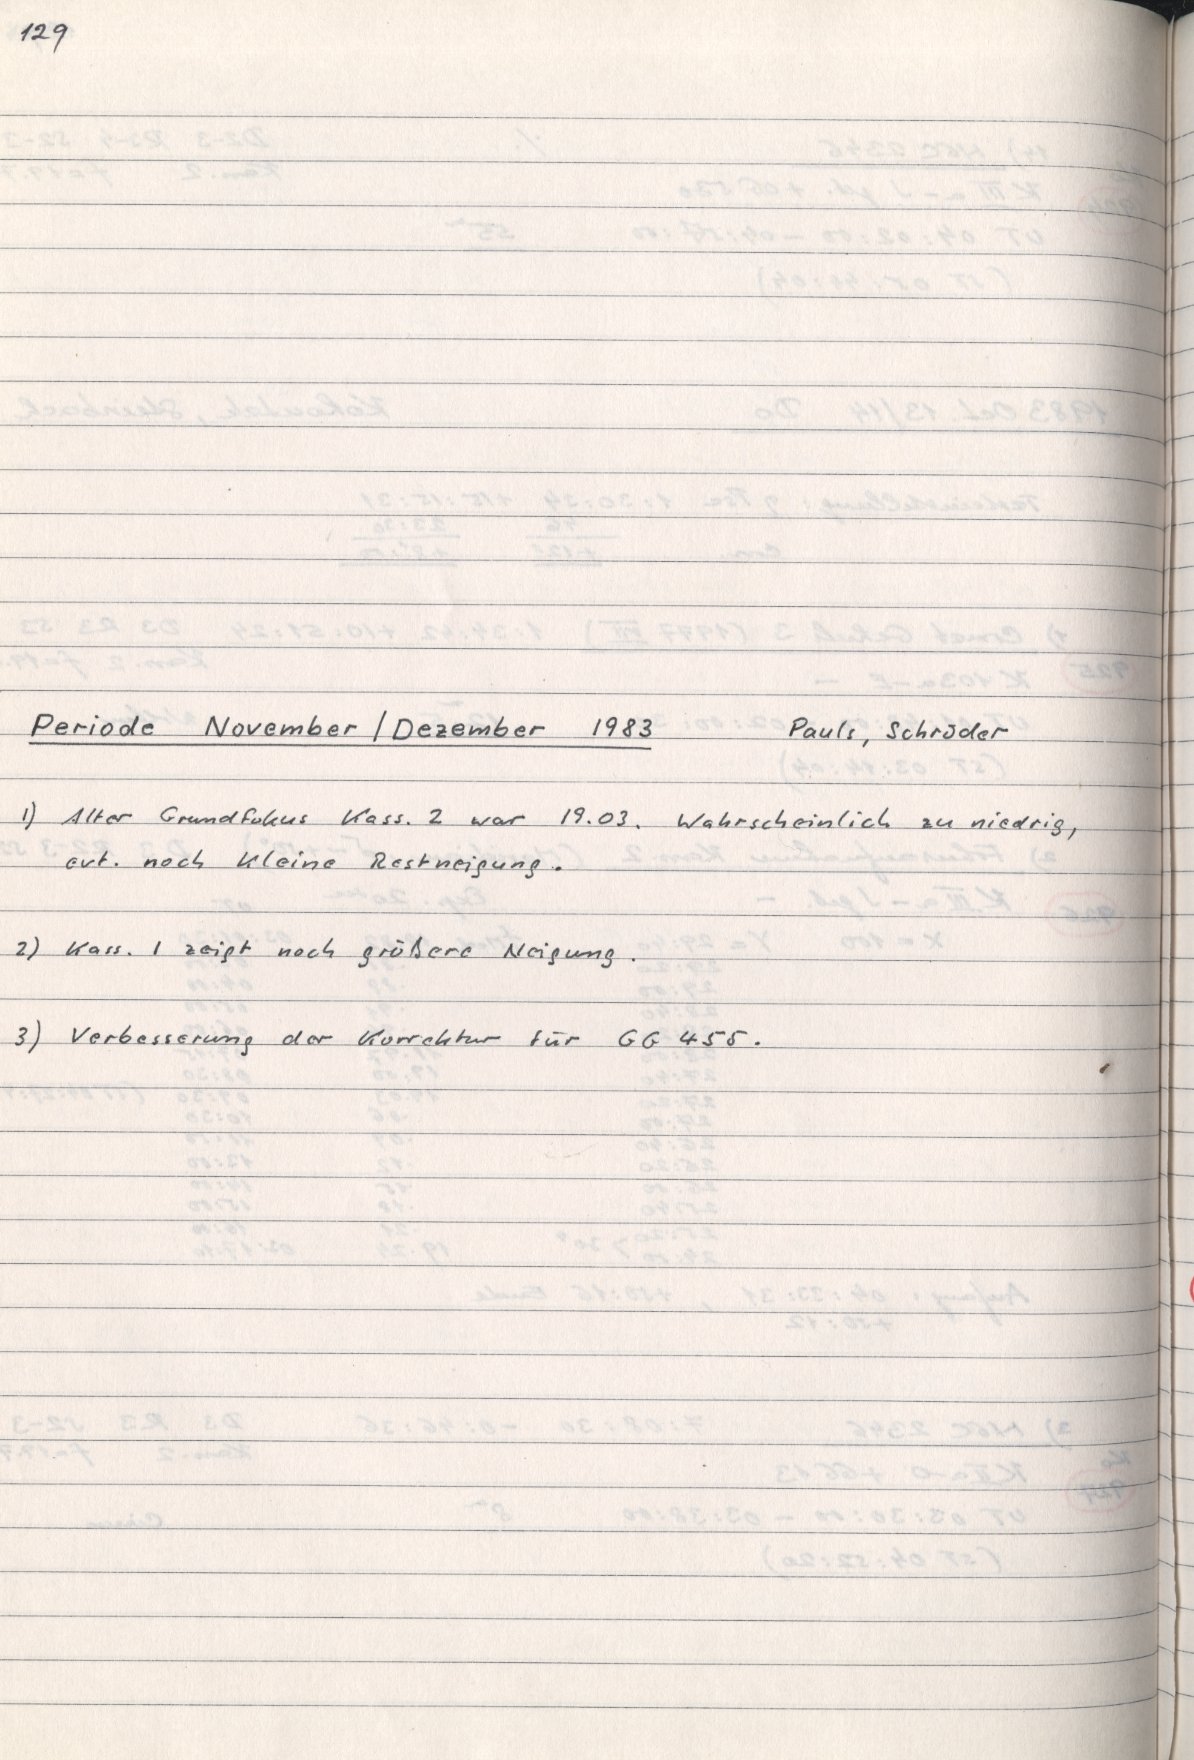 129
Periode November / Dezember 1983 Pauls, Schröder
1) Alter Grundfokus Kass. 2 war 19.03. Wahrscheinlich zu niedrig,
evt. noch kleine Restneigung.
2) Kass. 1 zeigt noch größere Neigung.
3) Verbesserung der Korrektur für GG 455.